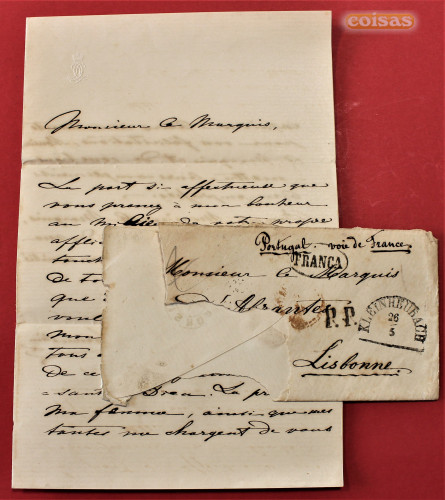 coisas
Monsieur le Marquis,
La part si affectueuse que
vous prenez à mon bonheur
au mi de votre propre
affli
tout
de to
que
voul
mon
tous
de ce
La pr
Ma femme, ainsi que mes
tantes me chargent de vous
Portugal. voie de France
FRANCA
Monsieur le Marquis
d'Abrantes
P.P.
KLEINHEUBACH
26
5
Lisbonne